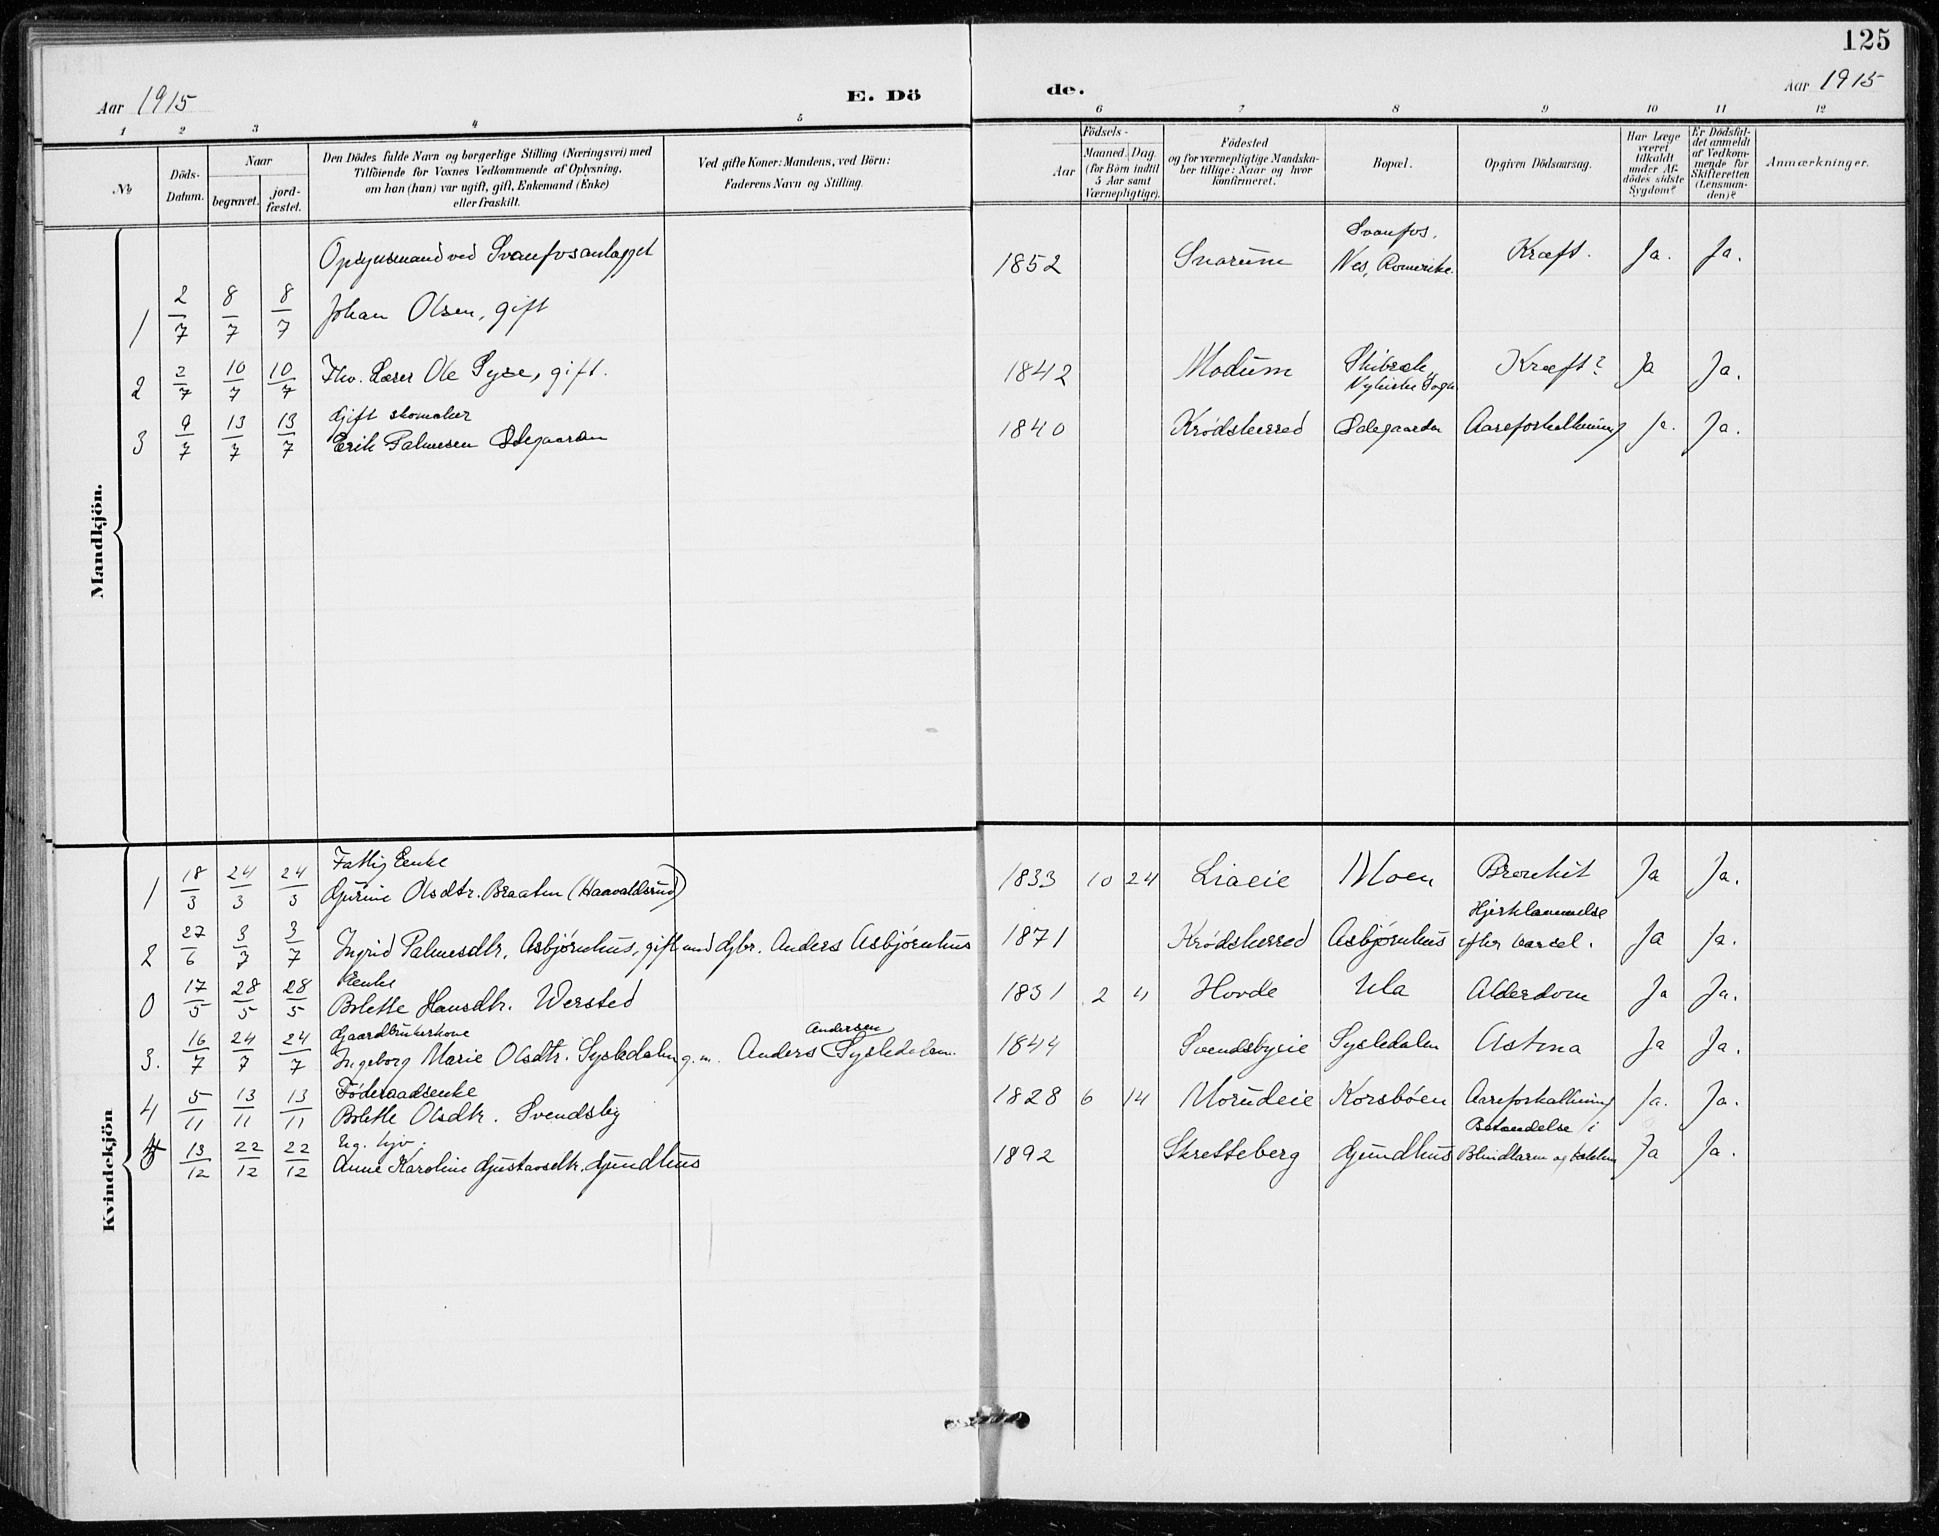 125
Aar 1915
E. Dö
de.
Aar 1915
1 2 3 4 5 6 7 8 9 10 11 12
№
Döds-Datum.
Naar
begravet.
jord-fæstet.
Den Dödes fulde Navn og borgerlige Stilling (Næringsvei) med
Tilföiende for Voxnes Vedkommende af Oplysning,
om han (hun) var ugift, gift, Enkemand (Enke)
eller fraskilt.
Ved gifte Koner: Mandens, ved Börn:
Faderens Navn og Stilling.
Födsels-
Aar
Maaned. Dag.
(for Börn indtil
5 Aar samt
Værnepligtige).
Födested
og for værnepligtige Mandska-
ber tillige: Naar og hvor
konfirmeret.
Bopæl.
Opgiven Dödsaarsag.
Har Læge
været
tilkaldt
under Af-
dödes sidste
Sygdom?
Er Dödsfal-
det anmeldt
af Vedkom-
mende for
Skifteretten
(Lensman-
den)?
Anmærkninger.
Mandkjön.
Opsynsmand ved Svanfosanlægget
1 2/7 8/7 8/7 Johan Olsen, gift 1852 Snarum Svanfos, Nes, Romerike. Kræft. Ja. Ja.
2 2/7 10/7 10/7 Fhv. Lærer Ole Syse, gift. 1842 Modum Kræft? Ja Ja.
Gift skomaker
3 9/7 13/7 13/7 Erik Palmesen Ødegaarden 1840 Krødsherred Ødegaarden Aareforkalkning Ja. Ja.
Kvindekjön
Fattig Enke
1 18/3 24/3 24/3 Gurine Olsdtr. Braaten (Haavaldsrud) 1833 10 24 Liaeie Moen Bronkit Ja Ja.
2 27/6 3/7 3/7 Ingrid Palmesdtr. Asbjørnhus, gift med Gbr. Anders Asbjørnhus 1871 Krødsherred Asbjørnhus Hjertelammelse efter barsel. Ja Ja.
Enke
0 17/5 28/5 28/5 Bolette Hansdtr. Wersted 1831 2 4 Hovde Ula Alderdom Ja Ja.
Gaardbrukerkone
3. 16/7 24/7 24/7 Ingeborg Marie Olsdtr. Sysledalen g.m. Anders Andersen Sysledalen. 1844 Svendsbyeie Sysledalen Astma Ja Ja.
Föderaadsenke
4 5/11 13/11 13/11 Bolette Olsdtr. Svendsby 1828 6 14 Morudeie Korsbøen Aareforkalkning Ja. Ja.
Ug. hjv.
5 13/12 22/12 22/12 Anne Karoline Gustavsdtr. Gundhus 1892 Skretteberg Gundhus Betændelse i Blindtarm og Ja Ja.